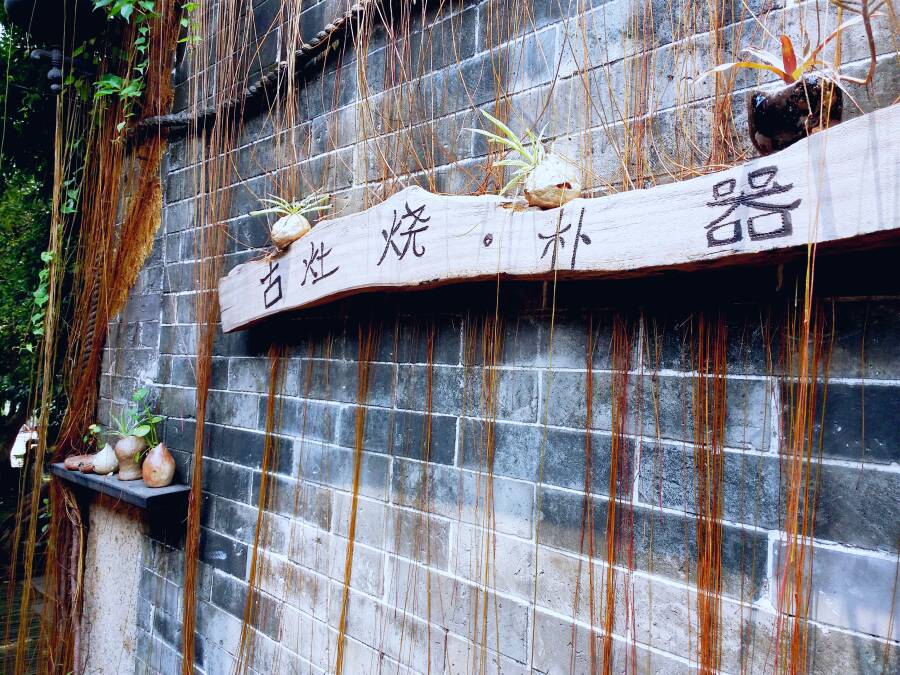 古灶烧·朴器